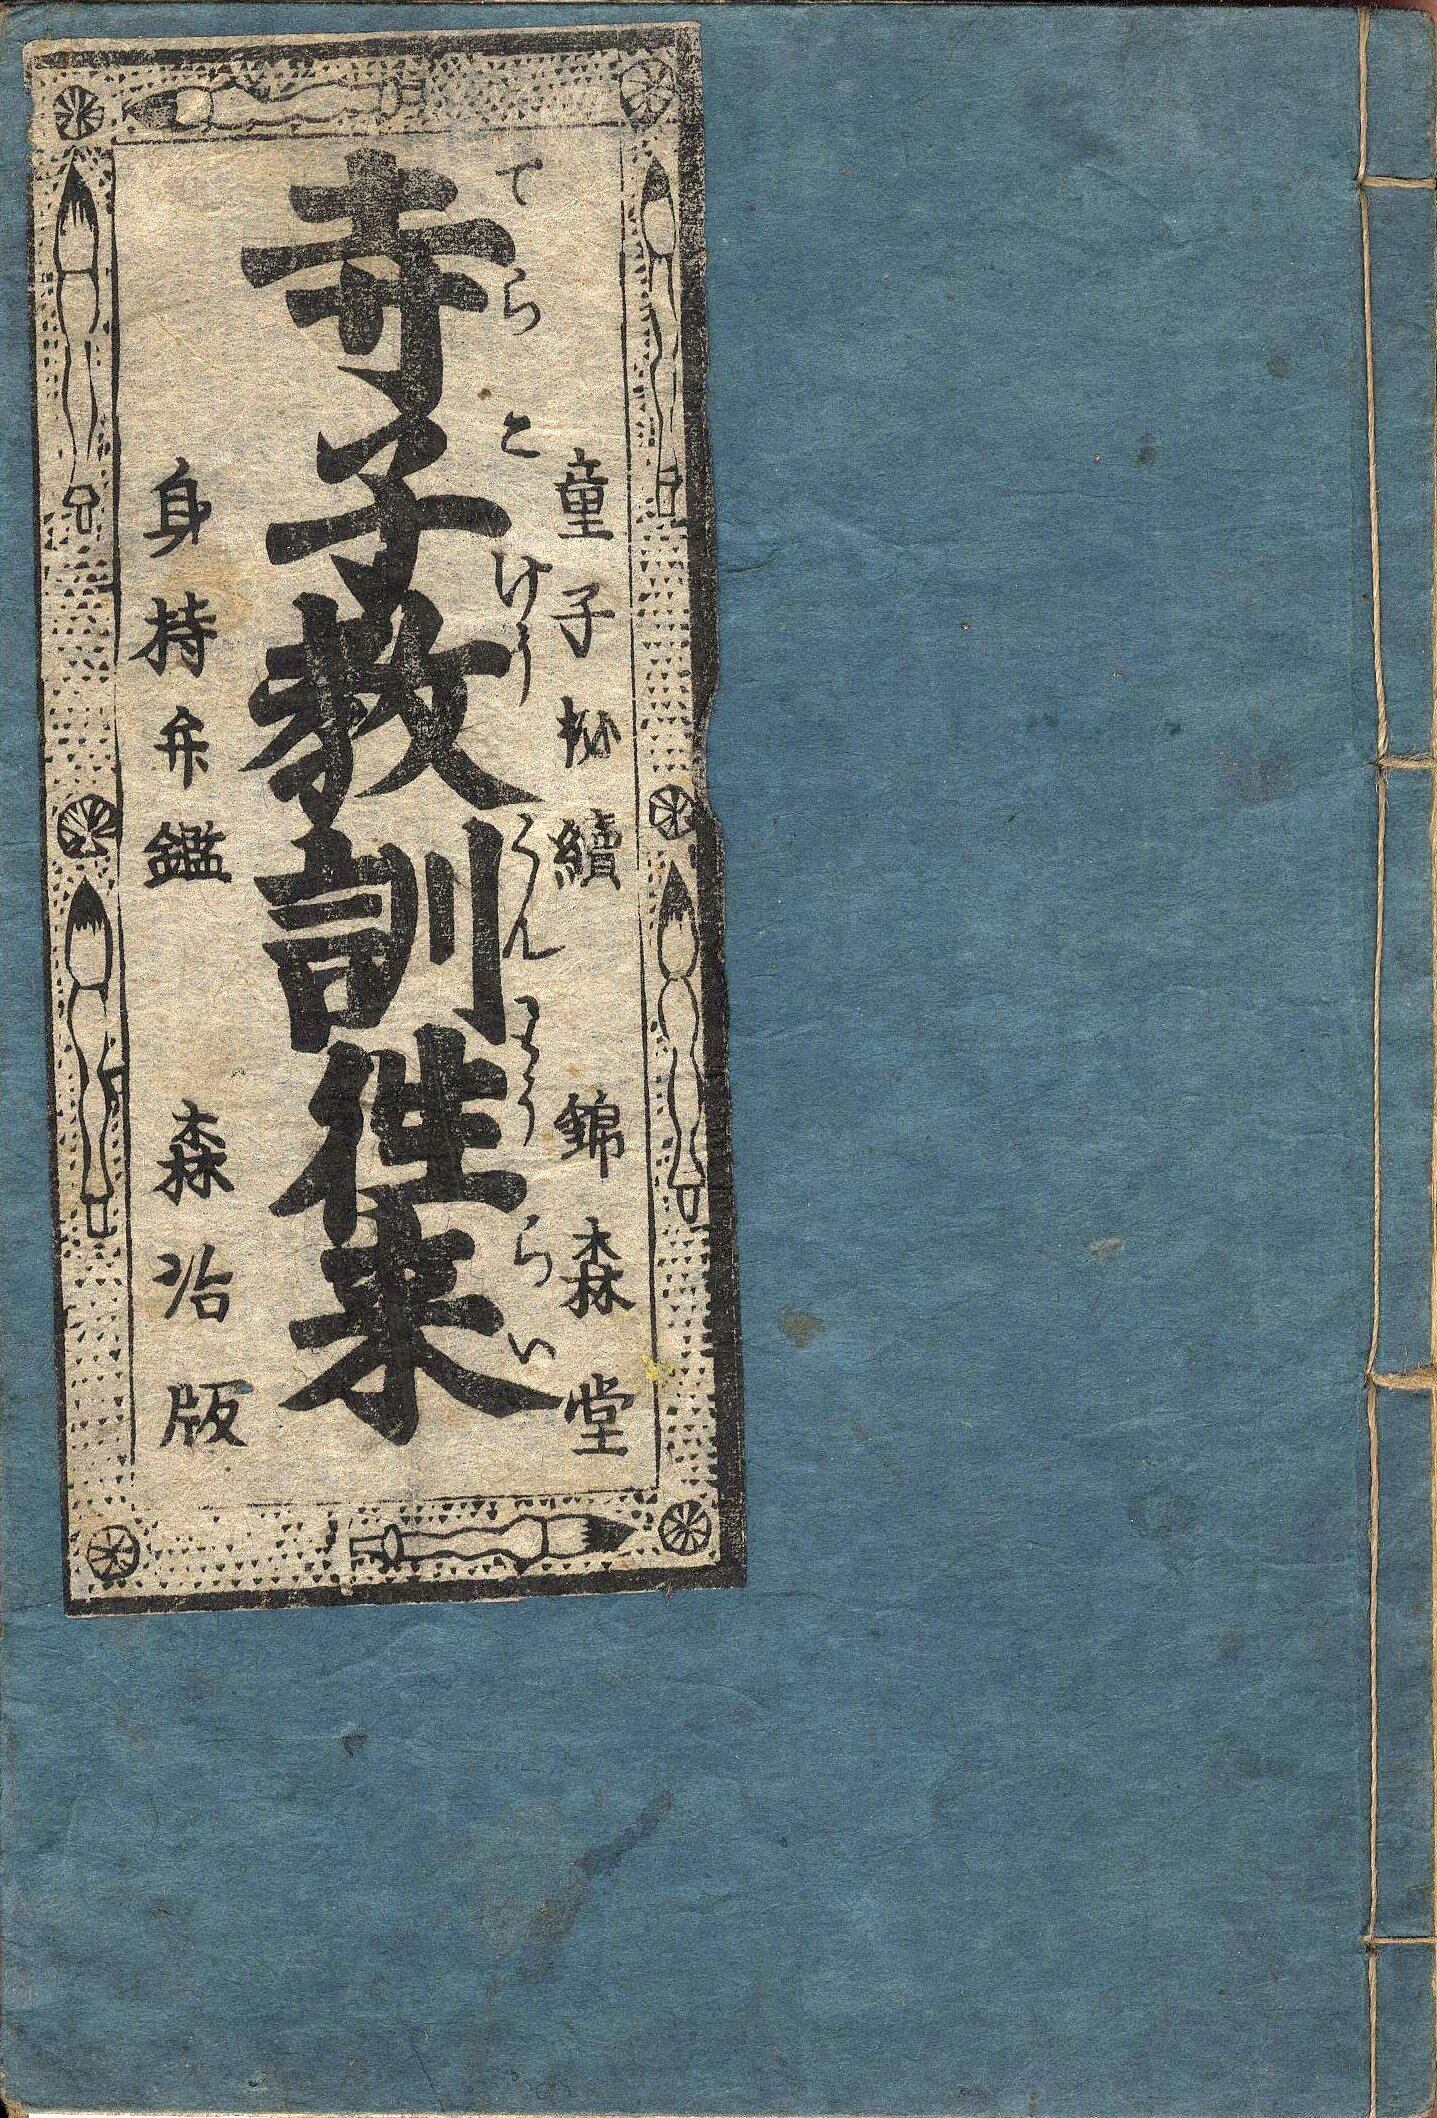 童子躾續 錦森堂
てらこけうくんわうらい
寺子教訓往来
身持弁鑑 森治版